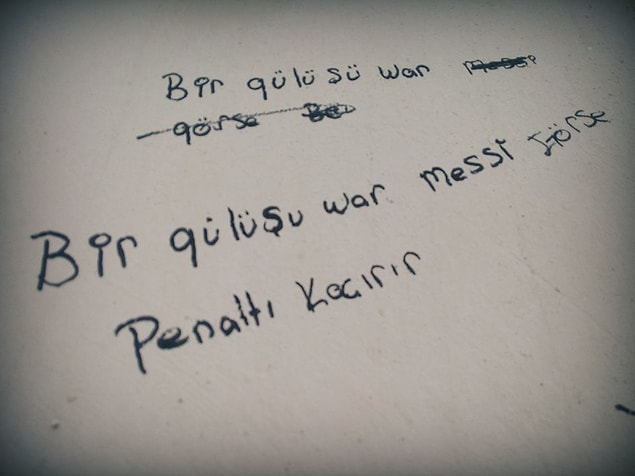 Bir gülüşü war
görse
Bir gülüşu war messi görse
Penaltı Kaçırır